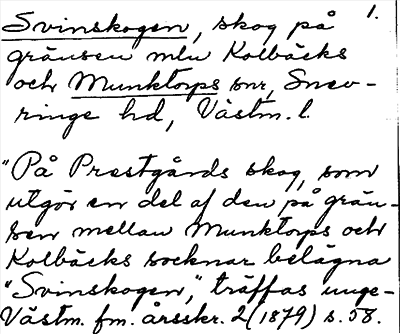 1.
Svinskogen, skog på
gränsen mln Kolbäcks
och Munktorps snr, Snev-
ringe hd, Västm. l.
"På Prestgårds skog, som
utgör en del af den på grän-
sen mellan Munktorps och
Kolbäcks socknar belägna
"Svinskogen," träffas unge-
Västm. fm. årsskr. 2 (1879) s. 58.